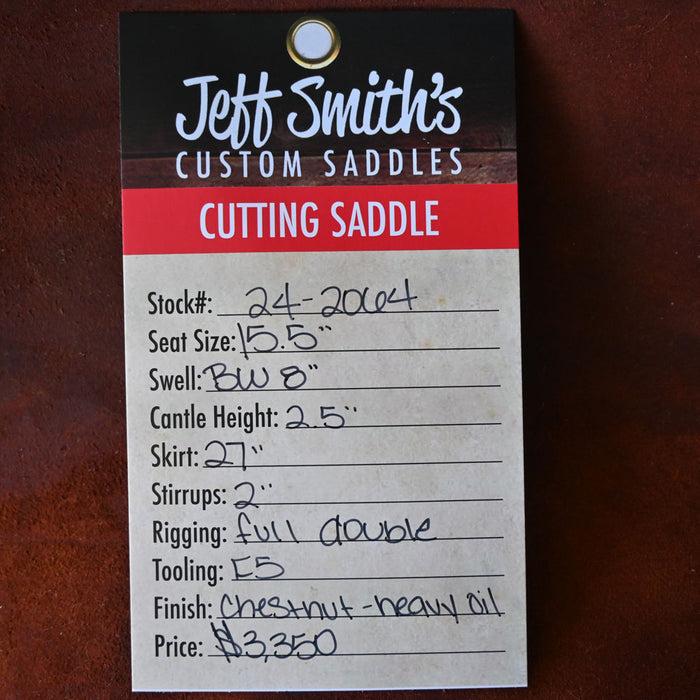 Jeff Smith's
CUSTOM SADDLES
CUTTING SADDLE
Stock#: 24-2064
Seat Size: 15.5"
Swell: BW 8"
Cantle Height: 2.5"
Skirt: 27"
Stirrups: 2"
Rigging: full double
Tooling: E5
Finish: Chestnut-heavy oil
Price: $3,350